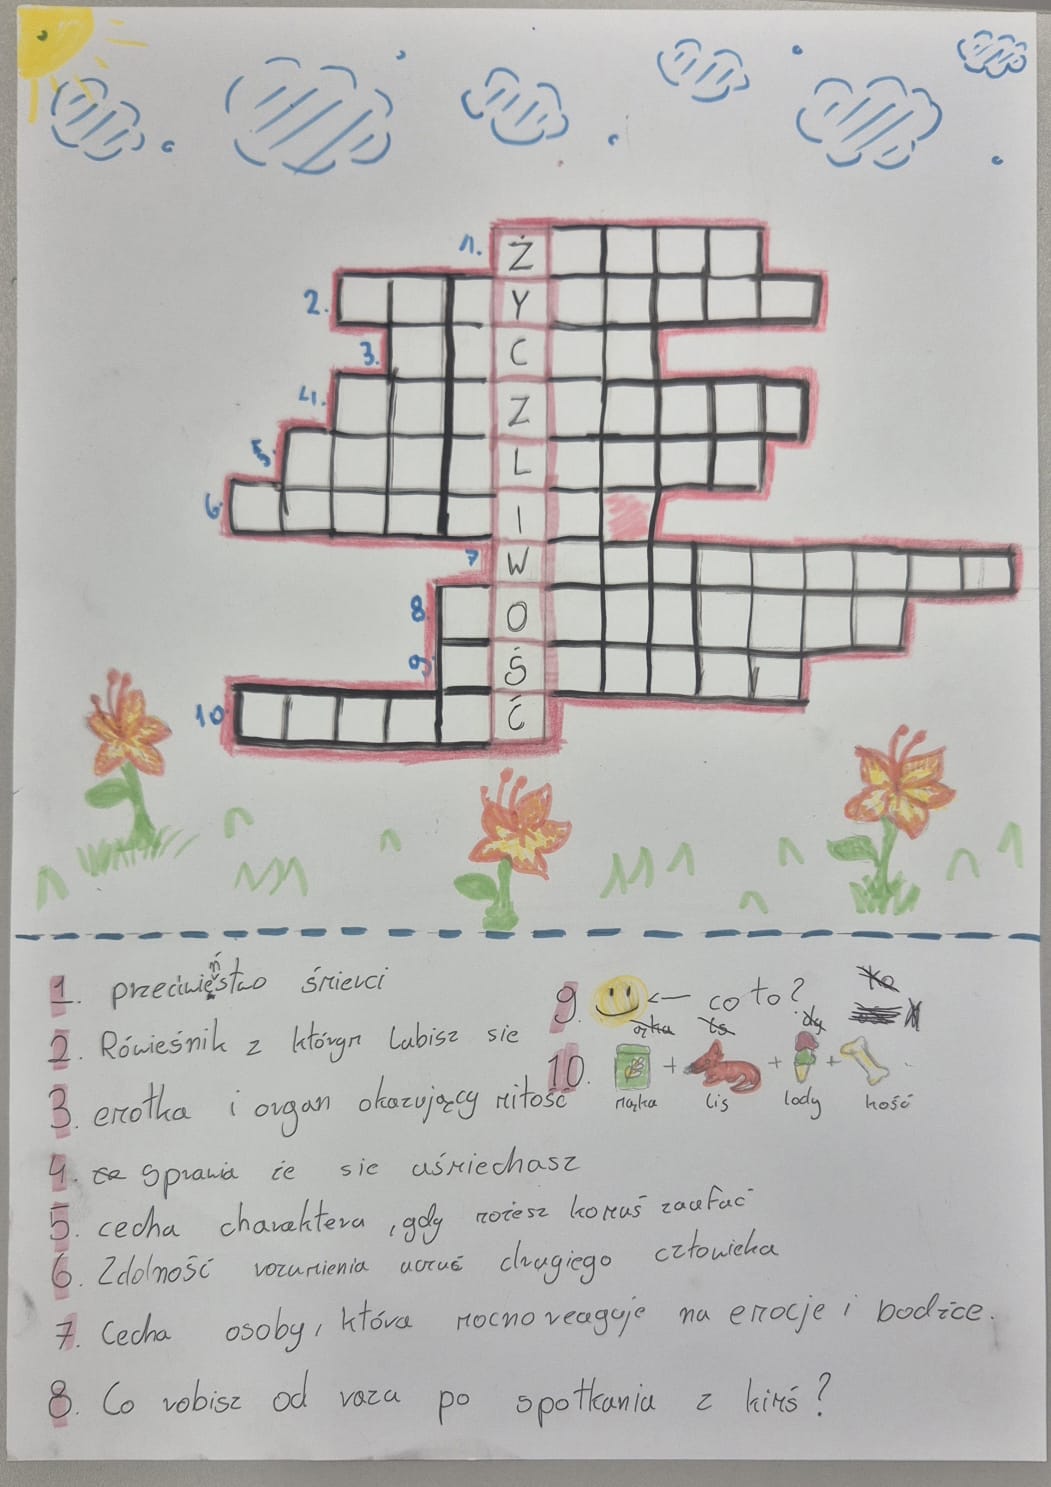 1.
Ż
2.
Y
3.
C
4.
Z
5.
L
6.
I
7
W
8
O
9
Ś
10
Ć
1. przeciwieństwo śmierci
2. Rówieśnik z którym lubisz sie
3. emotka i organ okazujący miłość
4. sprawia że sie uśmiechasz
5. cecha charakteru, gdy możesz komuś zaufać
6. Zdolność rozumienia uczuć drugiego człowieka
7. Cecha osoby, która mocno reaguje na emocje i bodźce.
8. Co robisz od razu po spotkaniu z kimś?
9. <— co to?
10. + + +
mąka lis lody kość